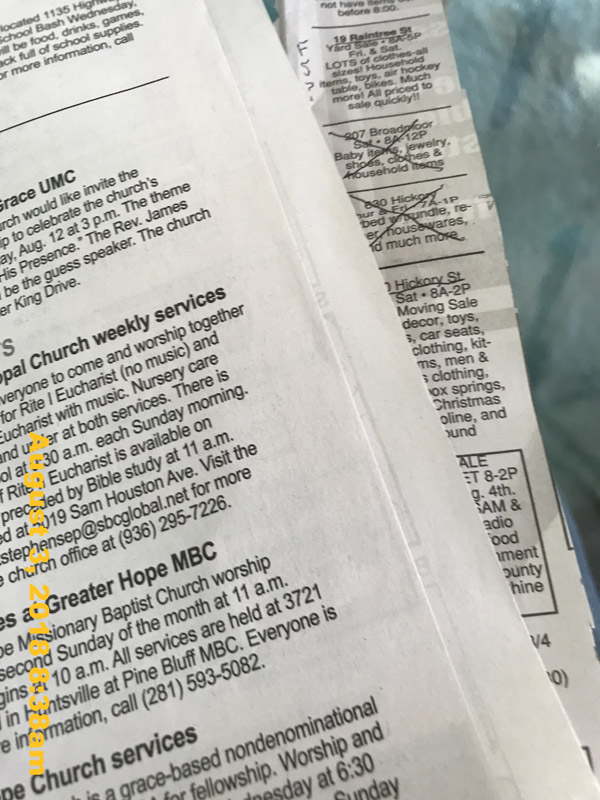 located 1135
School Bash Wednesday,
be food, drinks, games,
full of school supplies.
more information, call
Grace UMC
would like invite the
to celebrate the church's
Aug. 12 at 3 p.m. The theme
His Presence." The Rev. James
be the guest speaker. The church
King Drive.
Church weekly services
everyone to come and worship together
for Rite I Eucharist (no music) and
Eucharist with music. Nursery care
and at both services. There is
at 30 a.m. each Sunday morning.
Eucharist is available on
by Bible study at 11 a.m.
at 1019 Sam Houston Ave. Visit the
stephensep@sbcglobal.net for more
church office at (936) 295-7226.
Greater Hope MBC
Missionary Baptist Church worship
second Sunday of the month at 11 a.m.
10 a.m. All services are held at 3721
in Huntsville at Pine Bluff MBC. Everyone is
information, call (281) 593-5082.
Church services
is a grace-based nondenominational
for fellowship. Worship and
at 6:30
Sunday
not have items
before 8:00.
19 Raintree St
Yard Sale • 8A-5P
Fri. & Sat.
LOTS of clothes-all
sizes! Household
items, toys, air hockey
table, bikes. Much
more! All priced to
sale quickly!!
207 Broadmoor
Sat • 8A-12P
Baby items, jewelry,
shoes, clothes &
household items
630 Hickory
& Fri 7A-1P
bed w/trundle, re-
housewares,
much more
Hickory St
Sat • 8A-2P
Moving Sale
decor, toys,
car seats,
clothing, kit-
men &
clothing,
springs,
Christmas
and
8-2P
4th.
&
August 3, 2018 8:38am